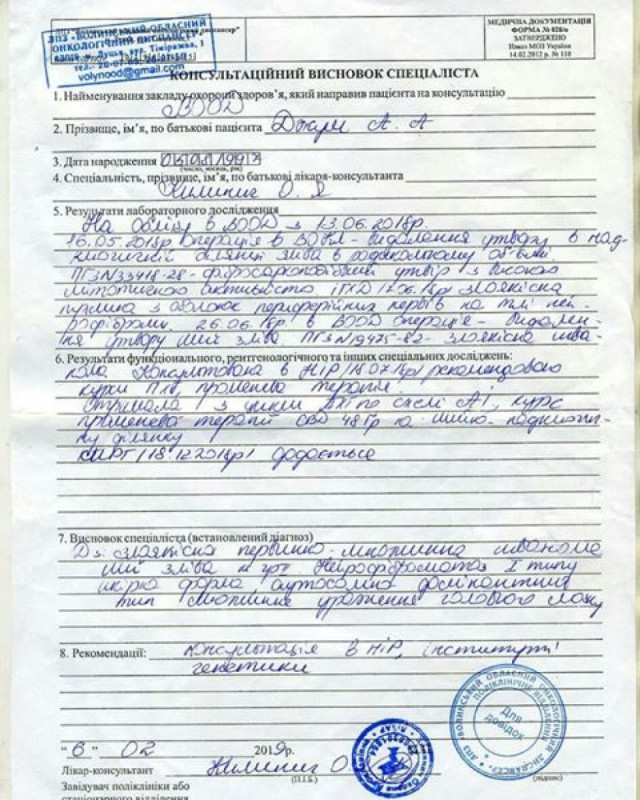 ДПЗ «ВОЛИНСЬКИЙ ОБЛАСНИЙ
ОНКОЛОГІЧНИЙ ДИСПАНСЕР»
м. Луцьк, вул. Тімірязєва, 1
volynood@gmail.com
МЕДИЧНА ДОКУМЕНТАЦІЯ
ФОРМА № 028/о
ЗАТВЕРДЖЕНО
Наказ МОЗ України
14.02.2012 р. № 110
КОНСУЛЬТАЦІЙНИЙ ВИСНОВОК СПЕЦІАЛІСТА
1. Найменування закладу охорони здоров'я, який направив пацієнта на консультацію
ВООД
2. Прізвище, ім'я, по батькові пацієнта А. А
3. Дата народження
(число, місяць, рік)
4. Спеціальність, прізвище, ім'я, по батькові лікаря-консультанта
5. Результати лабораторного дослідження
На обліку в ВООД з 13.06.2018р.
16.05.2018р операція в - видалення утвору в над-
ключичній ділянці зліва в
утвір з високою
мітотичною активністю 17.06.18р злоякісна
пухлина з оболонок периферійних нервів на тлі ней-
рофіброми. 26.06.18р в ВООД операція - видален-
ня утвору шиї зліва ПГЗ N19475-82 - злоякісна шва-
6. Результати функціонального, рентгенологічного та інших спеціальних досліджень:
нома Консультована в НІР /18.07.18р/ рекомендовано
курси ПХТ, променева терапія.
Отримала 3 цикли ПХТ по схемі АІ, курс
променевої терапії СОД 48 Гр на шийно-надключич-
ну ділянку
/18.12.2018р/ додається
7. Висновок спеціаліста (встановлений діагноз)
Dз: злоякісна первинно-множинна шванома
шиї зліва Нейрофіброматоз I типу
шкірна форма, аутосомно домінантний
тип множинне ураження головного мозку
8. Рекомендації: Консультація в НІР, інституті
генетики
"6" 02 2019р.
Лікар-консультант О
(П.І.Б.)
(підпис)
Завідувач поліклініки або
стаціонарного відділення
ДПЗ «ВОЛИНСЬКИЙ ОБЛАСНИЙ ОНКОЛОГІЧНИЙ ДИСПАНСЕР»
ПОЛІКЛІНІЧНЕ ВІДДІЛЕННЯ
Для
довідок